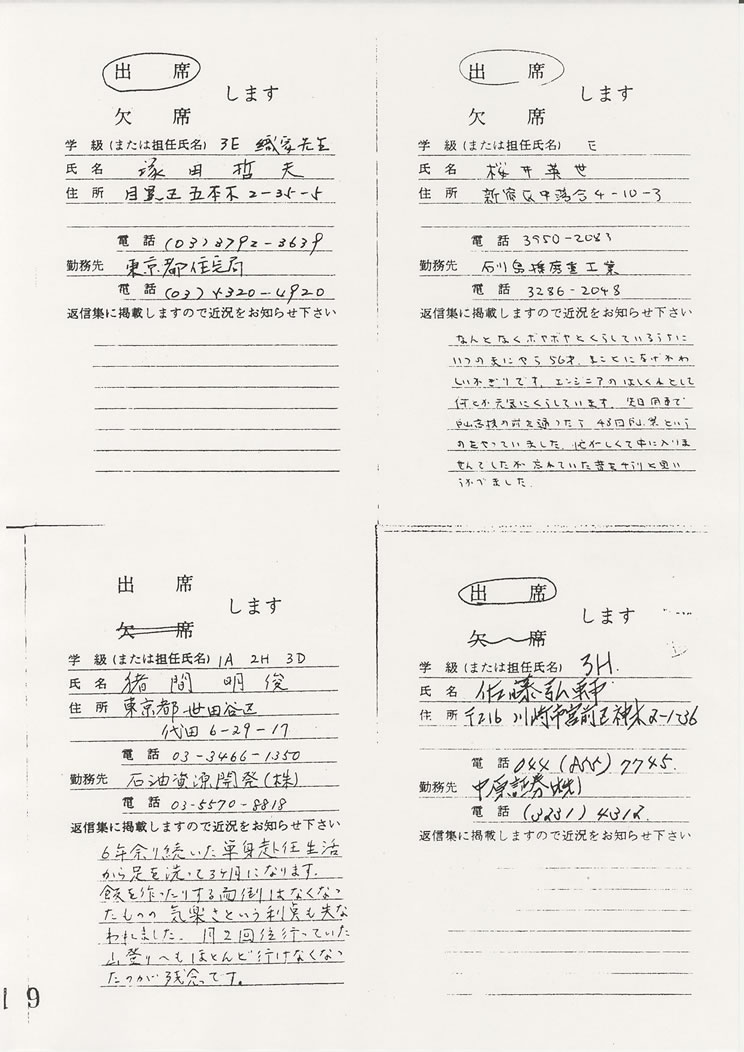 出席
します
欠席
学 級 (または担任氏名) 3E 織家先生
氏 名 塚田哲夫
住 所 目黒区五本木2-35-5
電 話 (03)3792-3639
勤務先 東京都住宅局
電 話 (03)4320-4920
返信集に掲載しますので近況をお知らせ下さい
出席
します
欠席
学 級 (または担任氏名) E
氏 名 桜井英世
住 所 新宿区中落合4-10-3
電 話 3950-2083
勤務先 石川島播磨重工業
電 話 3286-2048
返信集に掲載しますので近況をお知らせ下さい
なんとなくボヤボヤとくらしているうちに
いつの間にやら56才、まことになげかわ
しいかぎりです。エンジニアのはしくれとして
何とか元気にくらしています。先日
の前を通ったら 43回 祭という
のをやっていました。忙しくて中に入りま
せんでしたが忘れていた昔をチラリと思い
うかべました。
出席
します
欠席
学 級 (または担任氏名) 1A 2H 3D
氏 名 猪間明俊
住 所 東京都世田谷区
代田6-29-17
電 話 03-3466-1350
勤務先 石油資源開発(株)
電 話 03-5570-8818
返信集に掲載しますので近況をお知らせ下さい
6年余り続いた単身赴任生活
から足を洗って3ヶ月になります。
飯を作ったりする面倒はなくなっ
たものの 気楽さという利点も失な
われました。月2回位行っていた
山登りへもほとんど行けなくなっ
たのが残念です。
出席
します
欠席
学 級 (または担任氏名) 3H.
氏 名 佐藤弘
住 所 〒216 川崎市宮前区神木2-1-36
電 話 044(855)7745.
勤務先 中原証券(株)
電 話 (3231)4312.
返信集に掲載しますので近況をお知らせ下さい
19